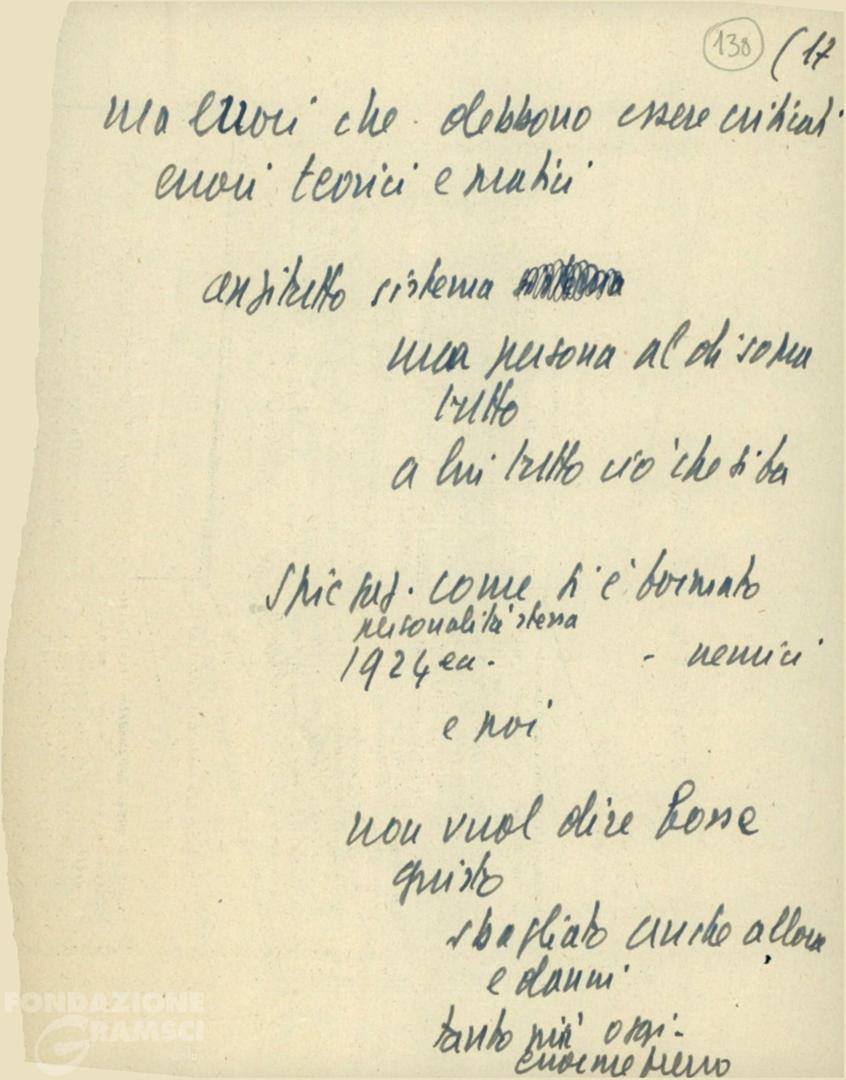 138 (17
ma errori che debbono essere criticati
errori teorici e pratici
anzitutto sistema
una persona al di sopra
tutto
a lui tutto ciò che si fa
Spiegaz. come si è formato
personalità stessa
1924 ecc. - nemici
e poi
non vuol dire fosse
giusto
sbagliato anche allora
e danni
tanto più oggi -
enorme freno
FONDAZIONE
GRAMSCI